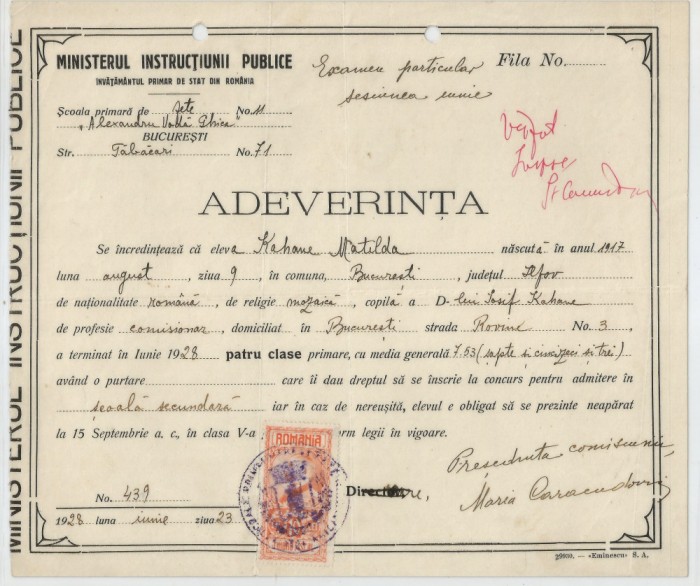 MINISTERUL INSTRUCȚIUNII PUBLICE
MINISTERUL INSTRUCȚIUNII PUBLICE
ÎNVĂȚĂMÂNTUL PRIMAR DE STAT DIN ROMÂNIA
Examen particular
Fila No.
sesiunea iunie
Școala primară de fete No. 11
"Alexandru Vodă Ghica"
BUCUREȘTI
Str. Tăbăcari No. 71
ADEVERINȚA
Se încredințează că eleva Kahane Matilda născută în anul 1917
luna august, ziua 9, în comuna, București, județul Ilfov
de naționalitate română, de religie mozaică, copilă a D-lui Iosif Kahane
de profesie comisionar, domiciliat în București strada Rovine No. 3,
a terminat în Iunie 1928 patru clase primare, cu media generală 7.53 (șapte și cincizeci și trei)
având o purtare care îi dau dreptul să se înscrie la concurs pentru admitere în
școală secundară iar în caz de nereușită, elevul e obligat să se prezinte neapărat
la 15 Septembrie a. c., în clasa V-a orm legii în vigoare.
ROMANIA
Președinta comisiunii,
No. 439
Maria
1928 luna iunie ziua 23
29930. — «Eminescu» S. A.